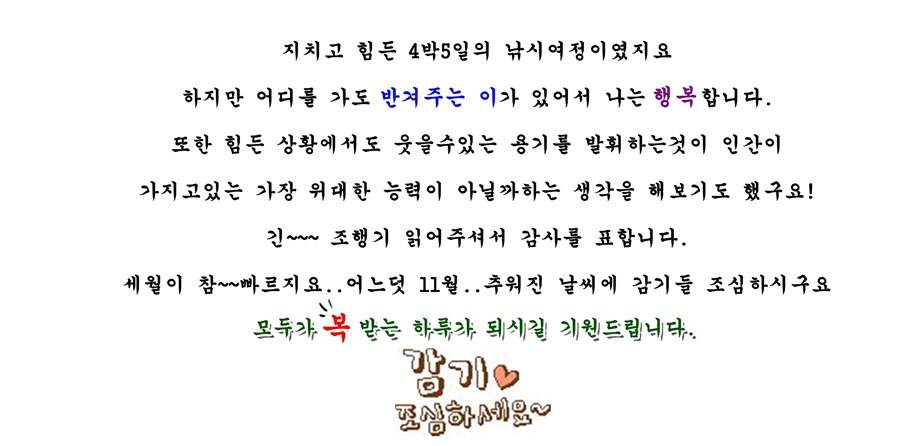 지치고 힘든 4박5일의 낚시여정이였지요
하지만 어디를 가도 반겨주는 이가 있어서 나는 행복합니다.
또한 힘든 상황에서도 웃을수있는 용기를 발휘하는것이 인간이
가지고있는 가장 위대한 능력이 아닐까하는 생각을 해보기도 했구요!
긴~~~ 조행기 읽어주셔서 감사를 표합니다.
세월이 참~~빠르지요..어느덧 11월..추워진 날씨에 감기들 조심하시구요
모두가 복 받는 하루가 되시길 기원드립니다.
감기
조심하세요~